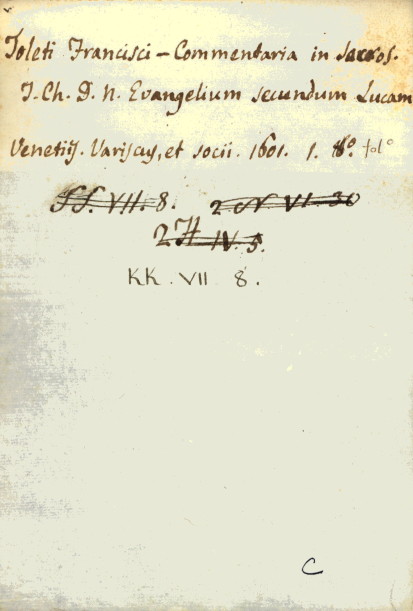 Toleti Francisci - Commentaria in sacros.
J. Ch. D. N. Evangelium secundum Lucam
Venetijs. Variscus, et socii. 1601. 1. 8º. folº
SS. VII. 8. 2 N VI. 30
2 H IV. 5.
KK. VII 8.
C